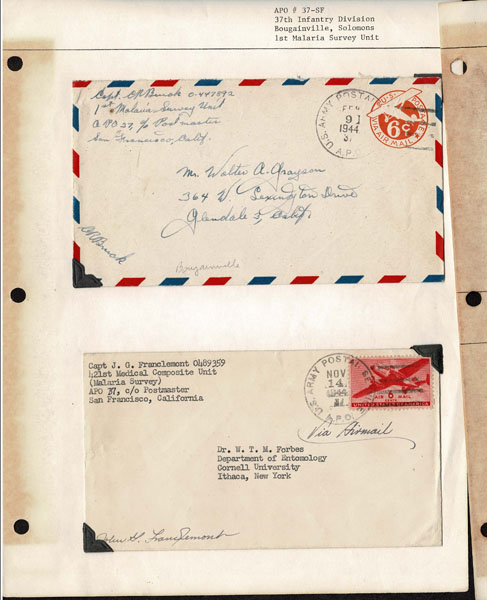 APO # 37-SF
37th Infantry Division
Bougainville, Solomons
1st Malaria Survey Unit
Capt. Burok 0-447892
1st Malaria Survey Unit
A.P.O. 37, c/o Postmaster
San Francisco, Calif.
U.S. ARMY POSTAL
FEB
9
1944
37
A.P.O.
U.S. POSTAGE
6¢
VIA AIR MAIL
Mr. Walter A. Grayson
364 W. Lexington Drive
Glendale 5, Calif.
Bougainville
Capt J. G. Franclemont 0489359
421st Medical Composite Unit
(Malaria Survey)
APO 37, c/o Postmaster
San Francisco, California
U.S. ARMY POSTAL SE
NOV
14
1944
37
A.P.O.
6
AIR MAIL
UNITED STATES OF AMERICA
Via Airmail
Dr. W. T. M. Forbes
Department of Entomology
Cornell University
Ithaca, New York
John G. Franclemont